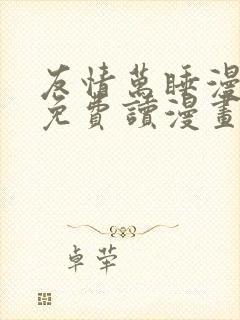 友情萬睡漫
免費讀漫畫
卓犖